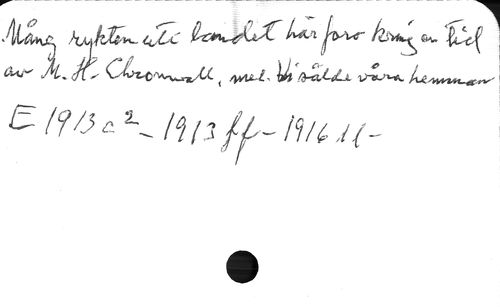 Mång rykten uti landet här foro kring en tid
av M. H. Chronwall, mel. Vi sålde våra hemman
E 1913 c² - 1913 ff - 1916 11 -